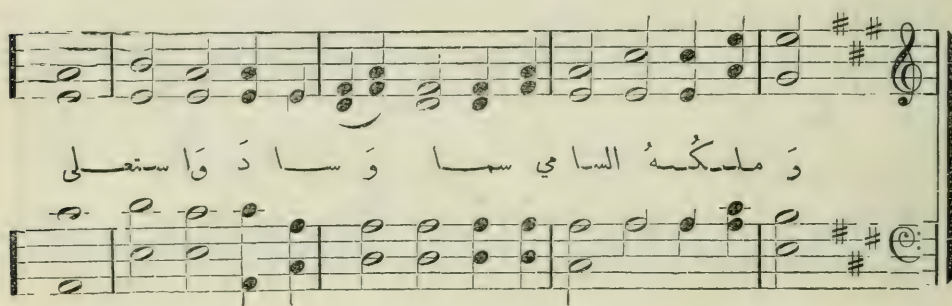 وَ ملـكـُـهُ السا مي سمـا وَ سـا دَ وَا ستعـلى